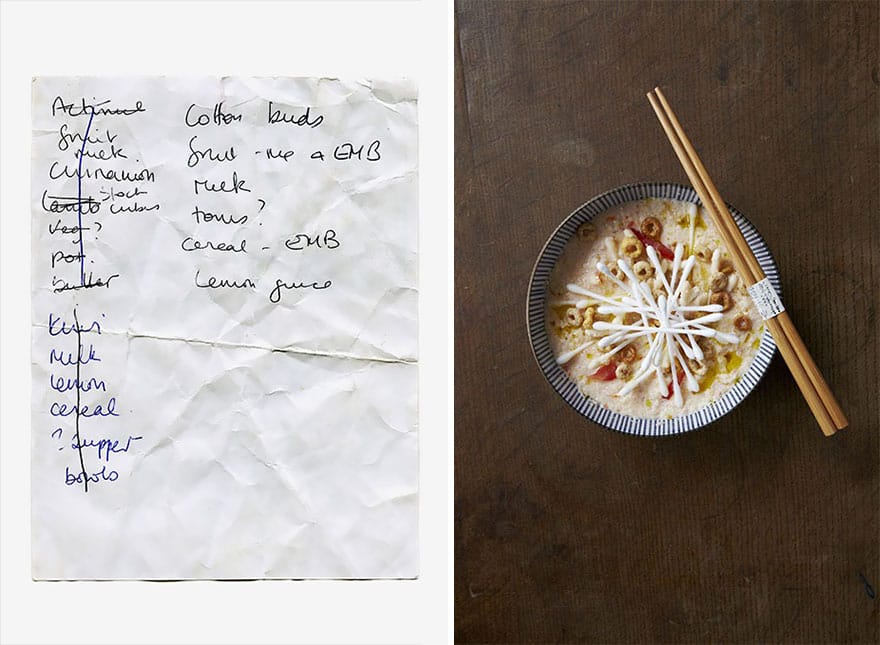 Actimel
fruit
milk.
Cinnamon
lamb stock
cubes
veg?
pot.
butter
kiwi
milk
lemon
cereal.
? supper
bowls
Cotton buds
fruit - me + EMB
milk
toms?
cereal - EMB
lemon juice